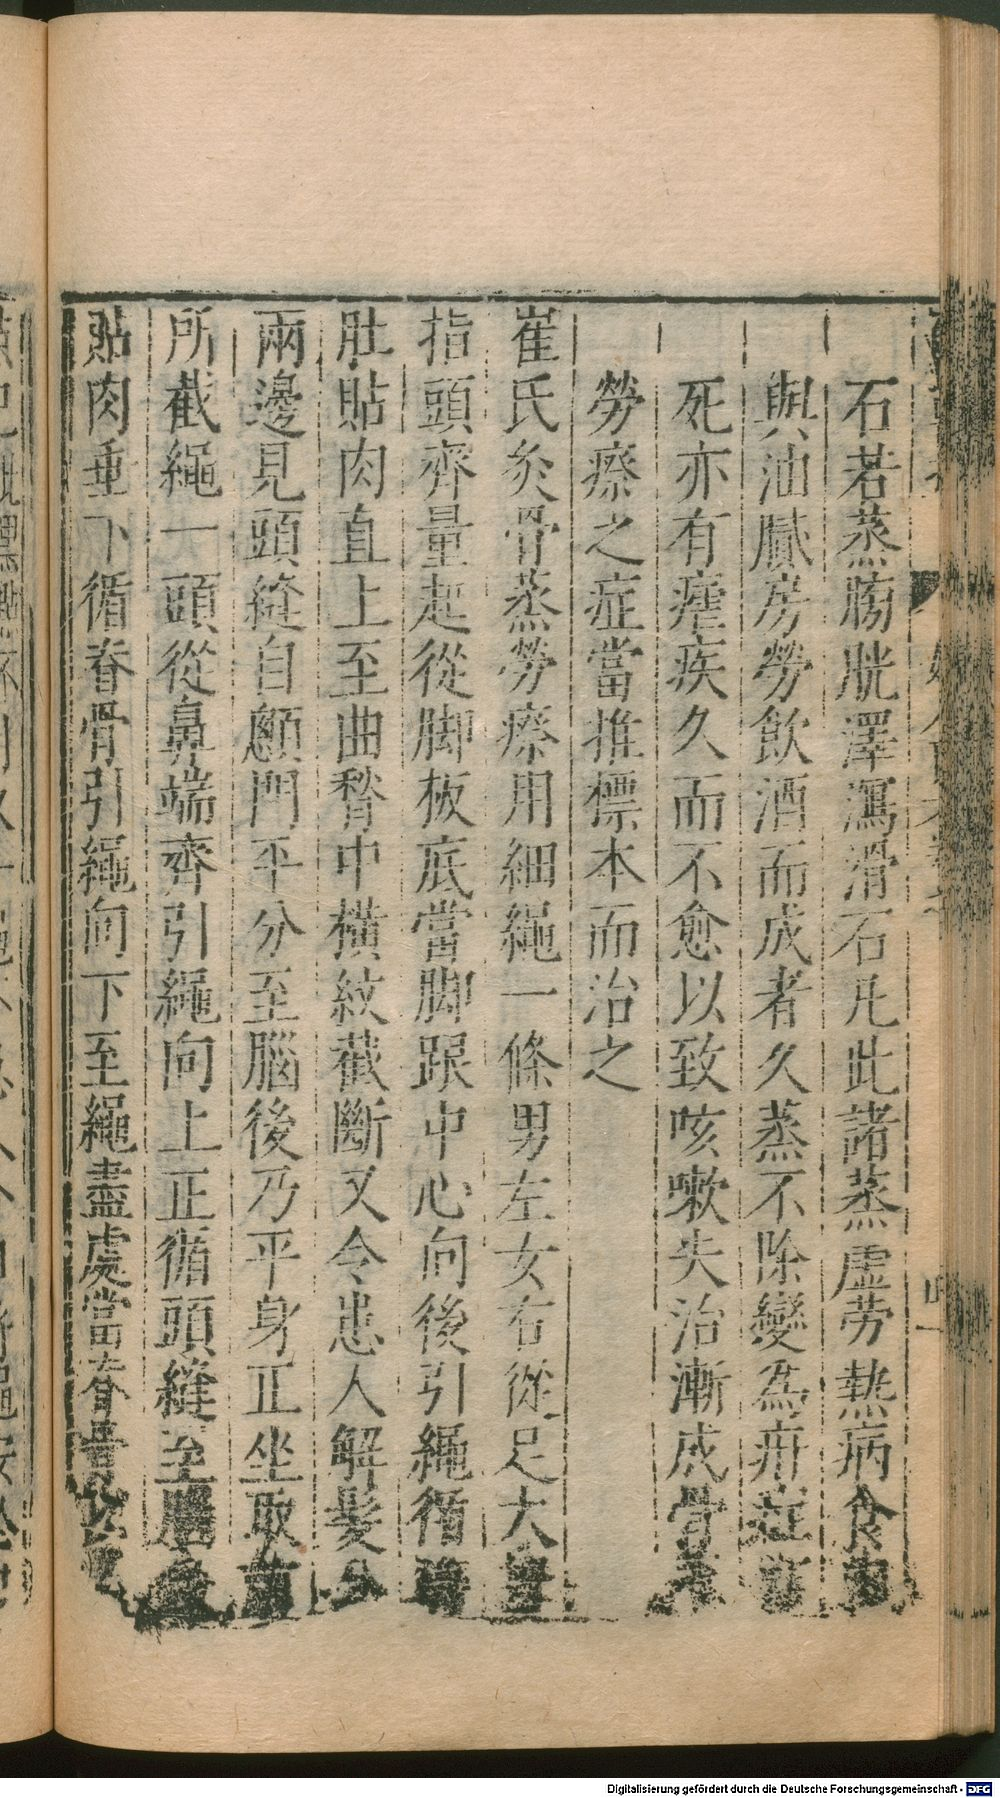 石若蒸膀胱澤瀉滑石凡此諸蒸虛勞熱病食肉
與油膩房勞飲酒而成者久蒸不除變為疳症
死亦有瘧疾久而不愈以致咳嗽失治漸成骨蒸
勞瘵之症當推標本而治之
崔氏灸骨蒸勞瘵用細繩一條男左女右從足大
指頭齊量起從脚板底當脚跟中心向後引繩循
肚貼肉直上至曲䐐中橫紋截斷又令患人解髮分
兩邊見頭縫自顖門平分至腦後乃平身正坐取
所截繩一頭從鼻端齊引繩向上正循頭縫至腦
貼肉垂下循脊骨引繩向下至繩盡處當脊骨
Digitalisierung gefördert durch die Deutsche Forschungsgemeinschaft - DFG